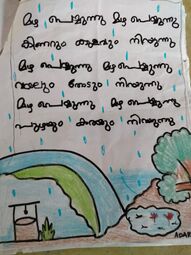 മഴ പെയ്യുന്നു മഴ പെയ്യുന്നു
കിണറും കുളവും നിറയുന്നു
മഴ പെയ്യുന്നു മഴ പെയ്യുന്നു
വയലും തോടും നിറയുന്നു
മഴ പെയ്യുന്നു മഴ പെയ്യുന്നു
പുഴയും കരയും നിറയുന്നു
ADAR